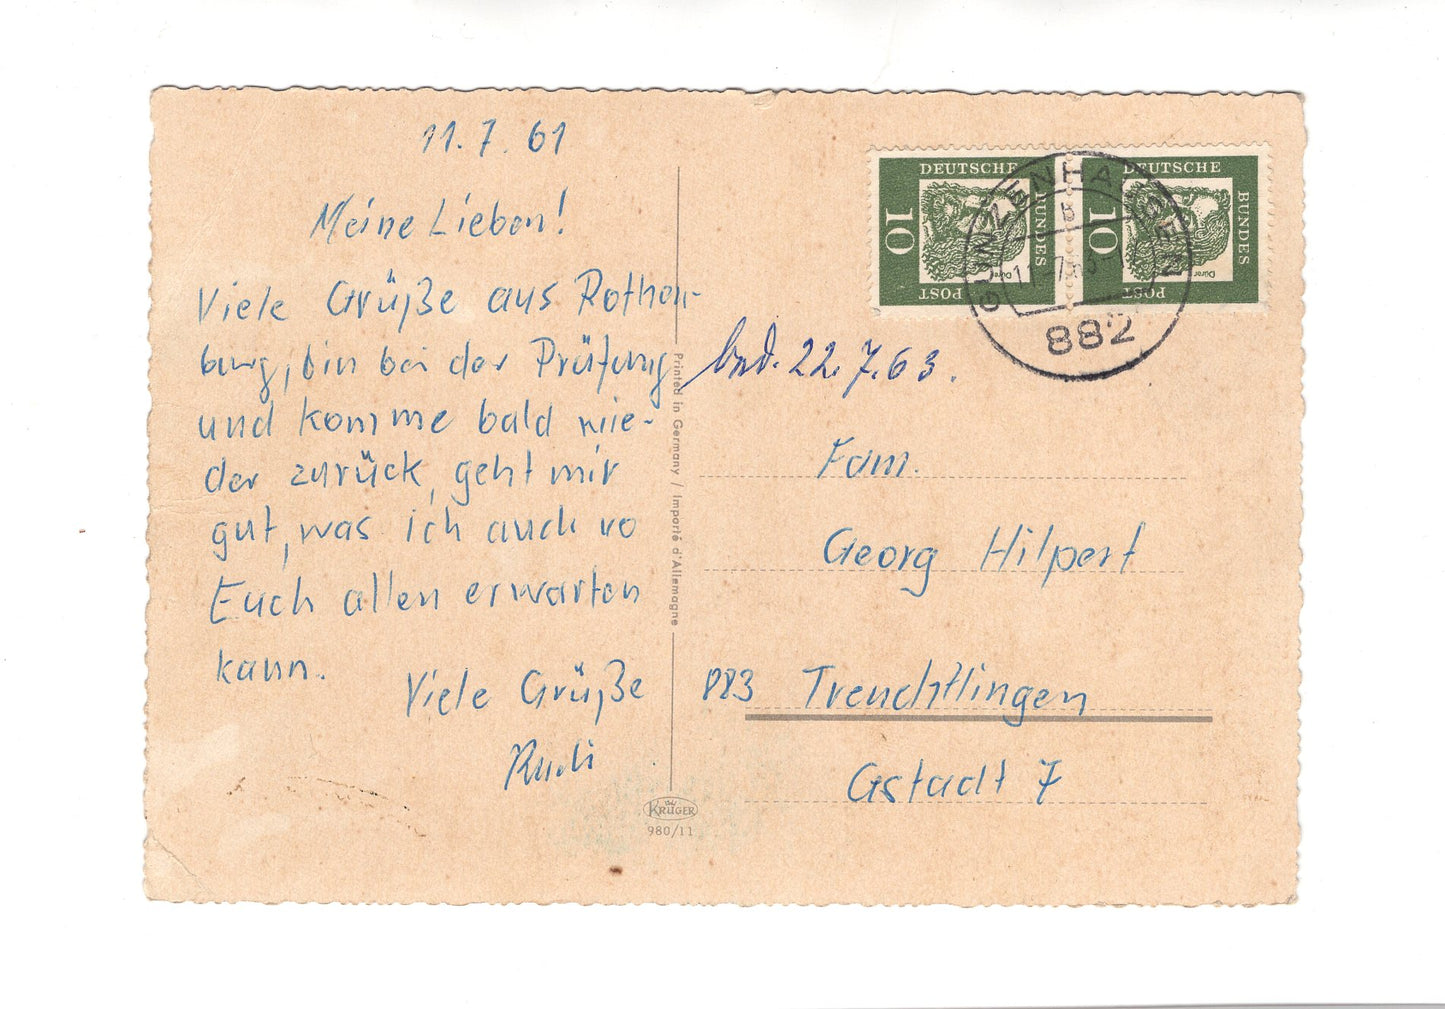 11. 7. 61
Meine Lieben!
Viele Grüße aus Rothen-
burg, bin bei der Prüfung
und komme bald wie-
der zurück, geht mir
gut, was ich auch vo
Euch allen erwarten
kann.
Viele Grüße
Rudi
Printed in Germany / Importé d'Allemagne
KRÜGER
980/11
DEUTSCHE
BUNDES
POST
10
Dürer
DEUTSCHE
BUNDES
POST
10
Dürer
GUNZENHAUSEN
B
882
22.7.63.
Fam.
Georg Hilpert
883 Treuchtlingen
Gstadt 7